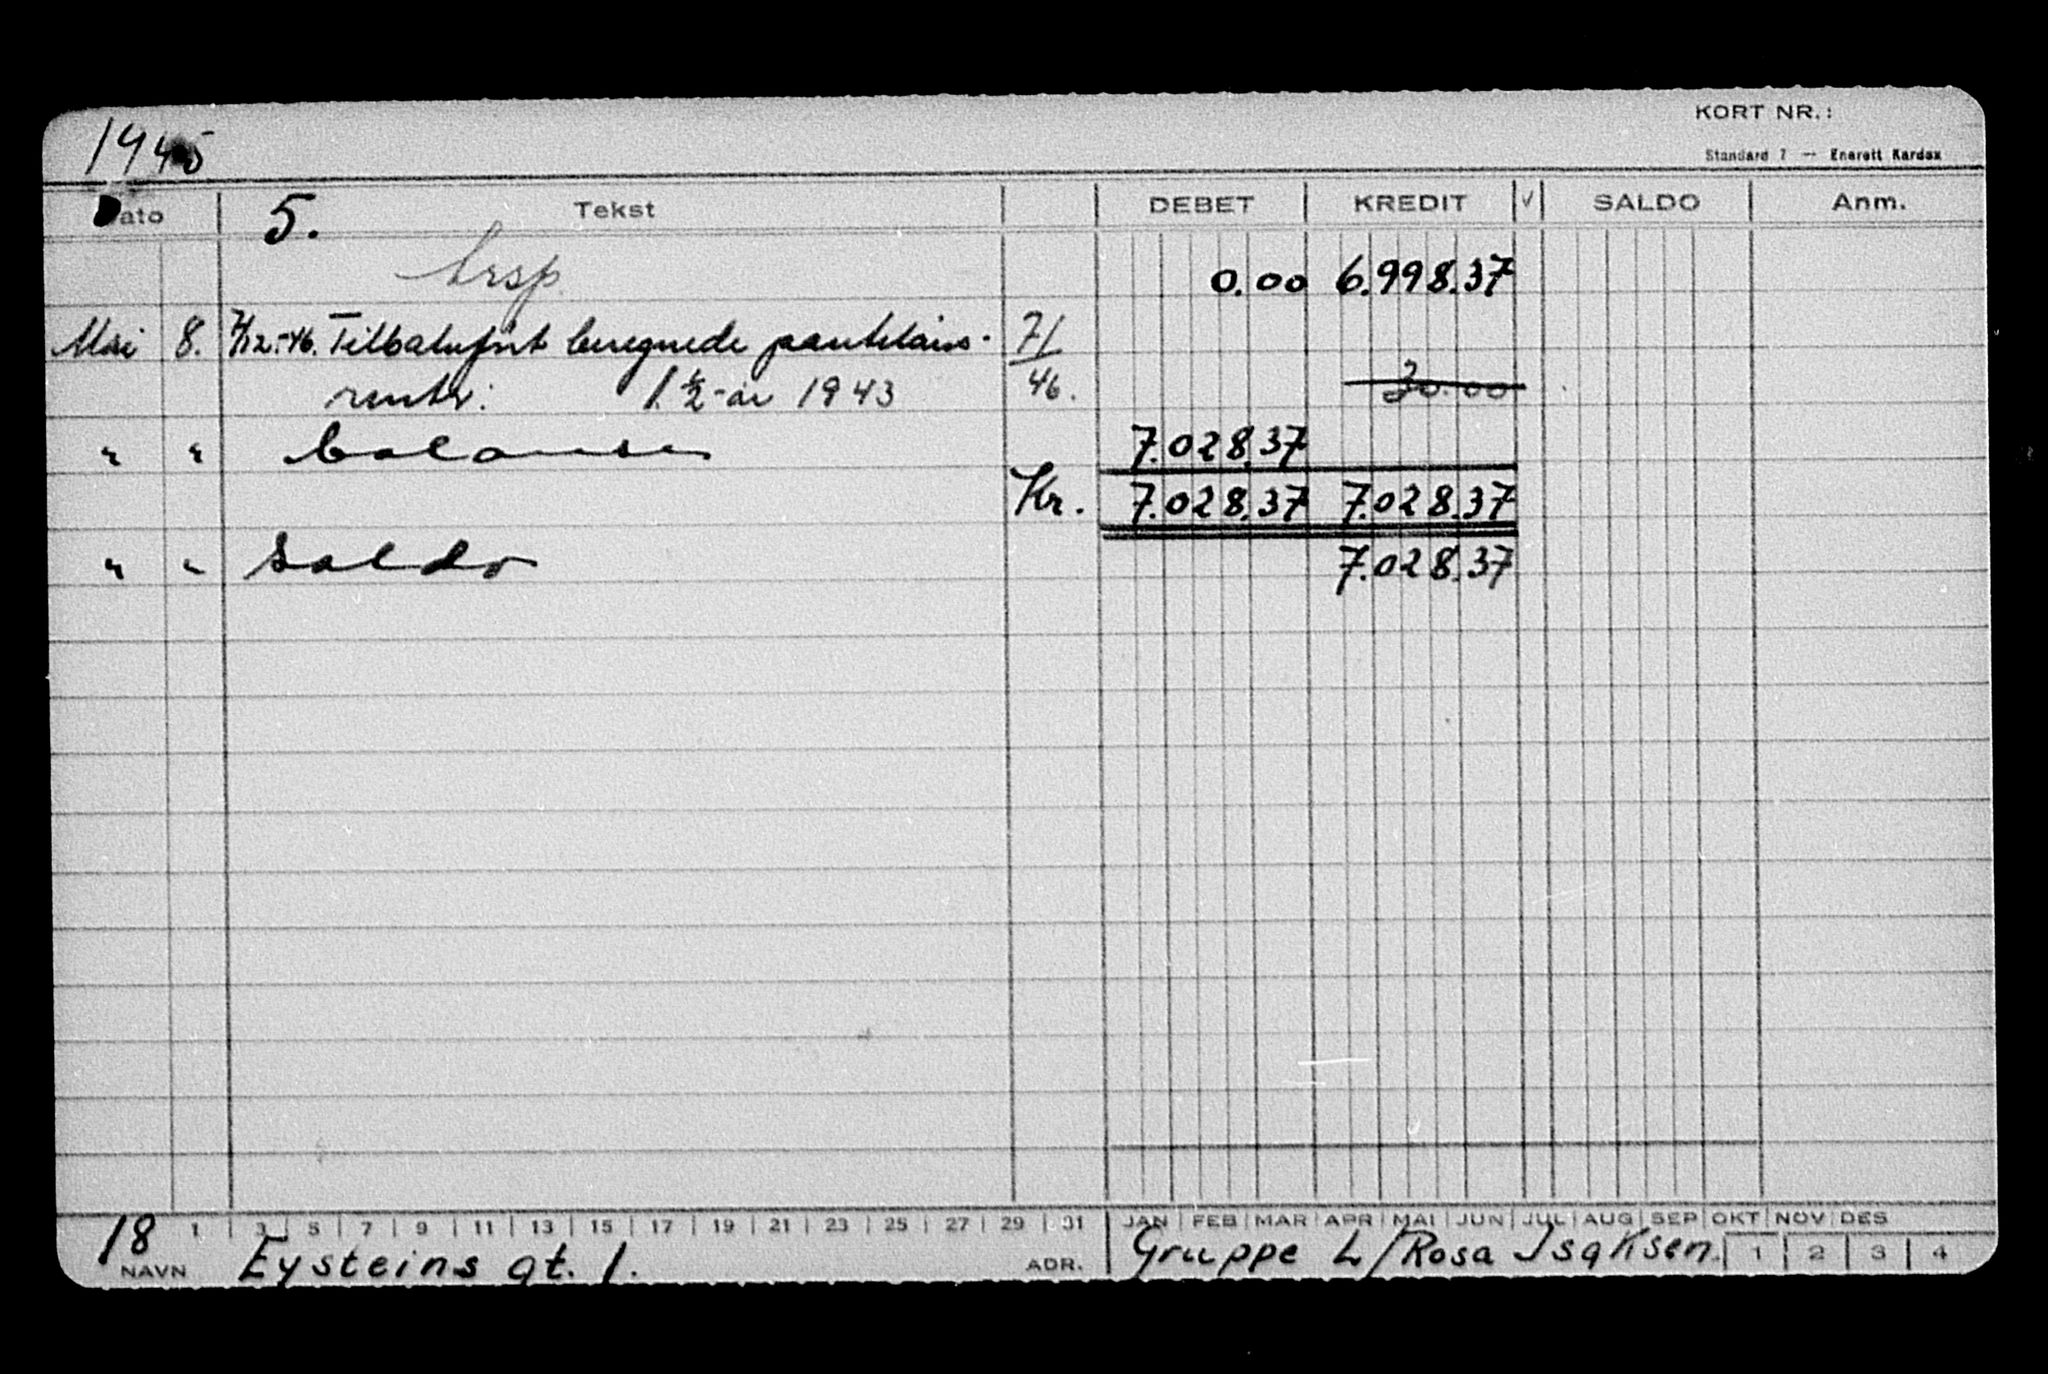 1945
KORT NR.:
Standard 7 — Enerett Kardex
Dato 5. Tekst DEBET KREDIT √ SALDO Anm.
trsp. 0.00 6.998.37
Mai 8. 7/12-46. Tilbakeført beregnede pantelåns- 71/
renter: 1. ½-år 1943 46. 30.00
" " balanse 7.028.37
Kr. 7.028.37 7.028.37
" " saldo 7.028.37
18 1 3 5 7 9 11 13 15 17 19 21 23 25 27 29 31 JAN FEB MAR APR MAI JUN JUL AUG SEP OKT NOV DES
NAVN Eysteins gt. 1. ADR. Gruppe L/Rosa Isaksen. 1 2 3 4